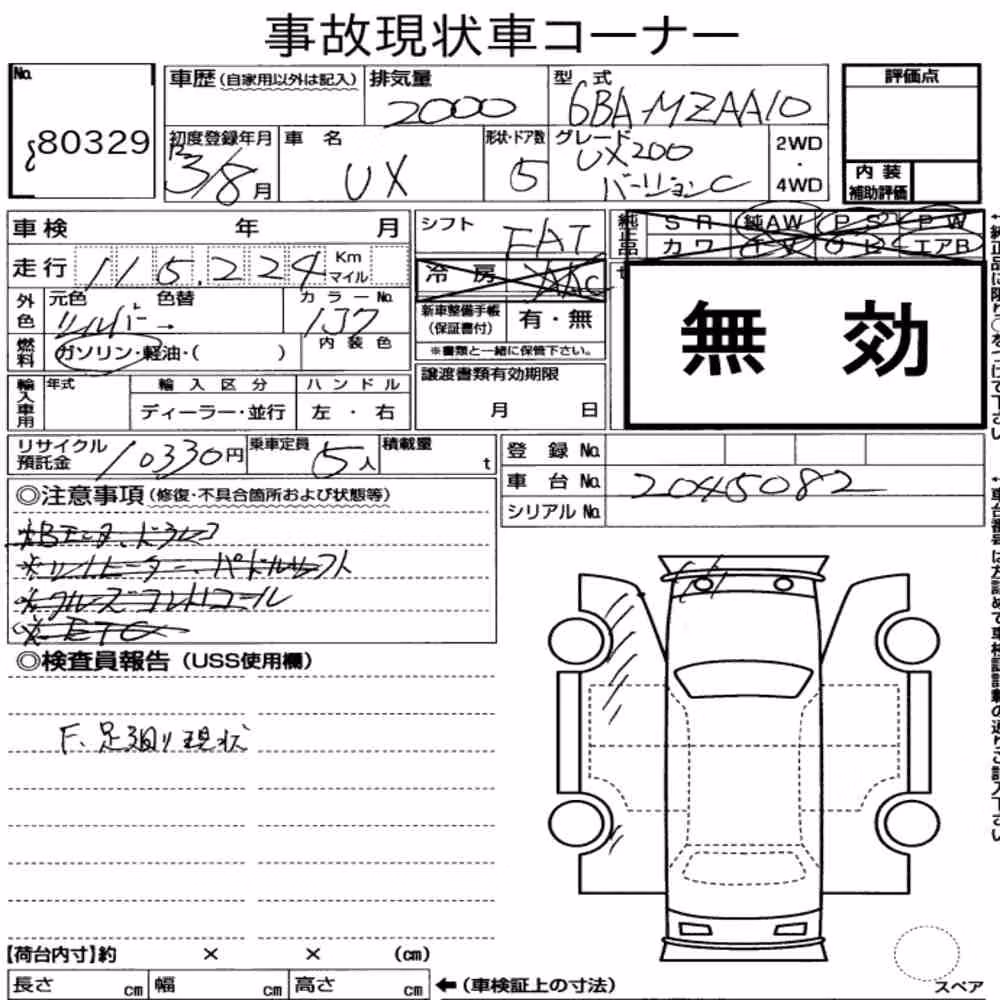 事故現状車コーナー
No.
80329
車歴(自家用以外は記入)
排気量
2000
型 式
6BA-MZAA10
評価点
初度登録年月
R3/8月
車 名
UX
形状・ドア数
5
グレード
UX200
バージョンC
2WD
・
4WD
内 装
補助評価
車検 年 月
シフト
FAT
純正品
S R 純AW P S P W
カ ワ T V サ ヒ エアB
走行 115,224 Km
マイル
冷 房 AAC
外色 元色 色替 カラーNo.
シルバー → 137
内 装 色
新車整備手帳
(保証書付)
有・無
※書類と一緒に保管下さい。
燃料 ガソリン・軽油・( )
無 効
輸入車用
年式
輸 入 区 分
ハ ン ド ル
ディーラー・並行
左 ・ 右
譲渡書類有効期限
月 日
リサイクル
預託金
10330円
乗車定員
5人
積載量
t
登 録 No.
車 台 No. 2045082
シリアル No.
◎注意事項(修復・不具合箇所および状態等)
※Bモニター、ドラレコ
※シートヒーター、パドルシフト
※クルーズコントロール
※ETC
◎検査員報告(USS使用欄)
F、足廻り現状
【荷台内寸】約 × × (cm)
長さ cm 幅 cm 高さ cm ←(車検証上の寸法)
スペア